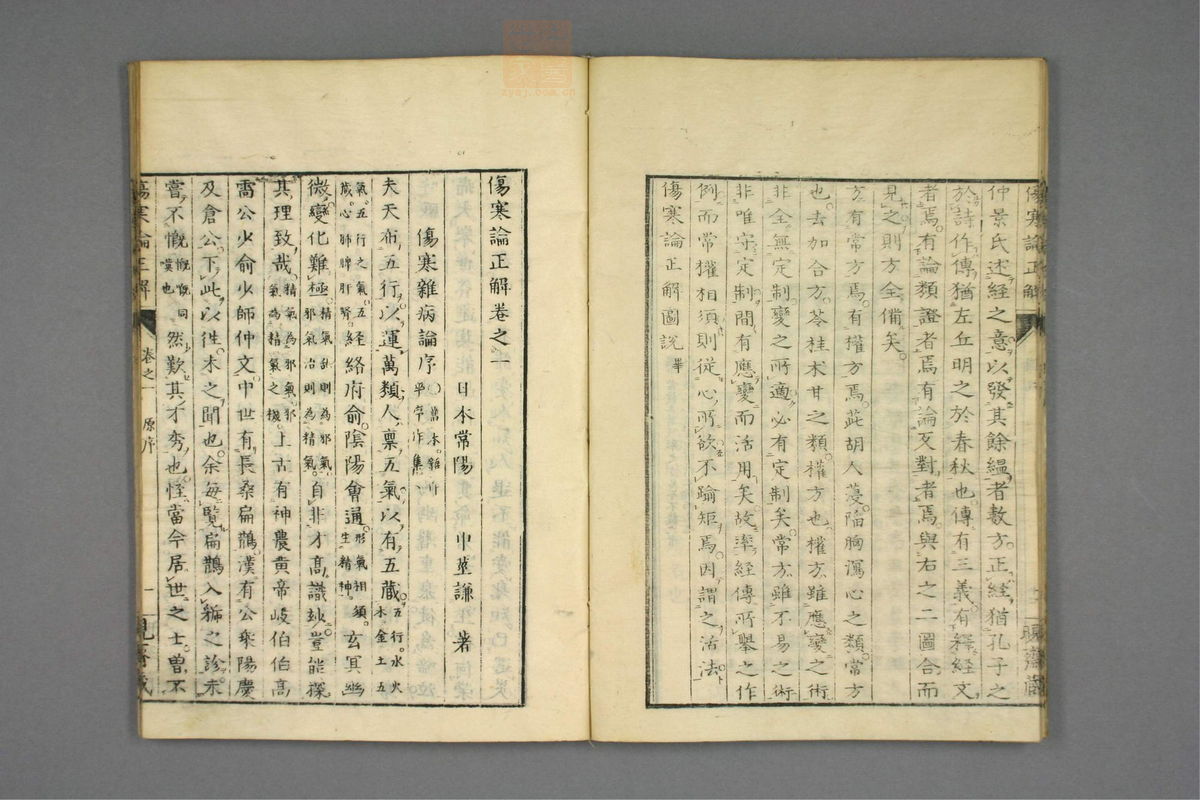 仲景氏述經之意以發其餘緼者數方正經猶孔子之
於詩作傳猶左丘明之於春秋也傳有三義有釋經文
者焉有論類證者焉有論反對者焉與右之二圖合而
見之則方全備矣
方有常方焉有權方焉茈胡人蓡陷胸瀉心之類常方
也去加合方苓桂朮甘之類權方也權方雖應變之術
非全無定制變之所適必有定制矣常方雖不易之術
非唯守定制間有應變而活用矣故率經傳所舉之作
例而常權相須則從心所欲不踰矩焉因謂之活法
傷寒論正解圖說 畢
傷寒論正解卷之一
日本常陽 中莖謙 著
傷寒雜病論序
夫天布五行以運萬類人稟五氣以有五藏 五行水火木金土五
氣五行之氣五藏心肺脾肝腎 經絡府俞陰陽會通 形氣相須生精神 玄冥幽
微變化難極 精氣乱則為邪氣邪氣治則為精氣 自非才高識玅豈能探
其理致哉 精氣為邪氣邪氣為精氣之機 上古有神農黄帝岐伯伯高
雷公少俞少師仲文中世有長桑扁鵲漢有公乘陽慶
及倉公下此以徃未之聞也余每覽扁鵲入虢之診未
嘗不慨 慨慨同嘆也 然歎其才秀也怪當今居世之士曽不
傷寒論正解 卷之一 原序 一
zysj.com.cn